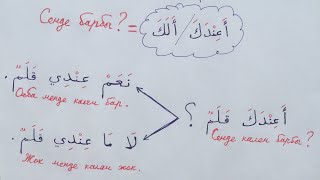 Сенде барбы? = أَعِنْدَكَ / أَلَكَ
نَعَمْ عِنْدِي قَلَمٌ.
Ооба менде калем бар.
أَعِنْدَكَ قَلَمٌ ؟
Сенде калем барбы?
لَا مَا عِنْدِي قَلَمٌ.
Жок менде калем жок.